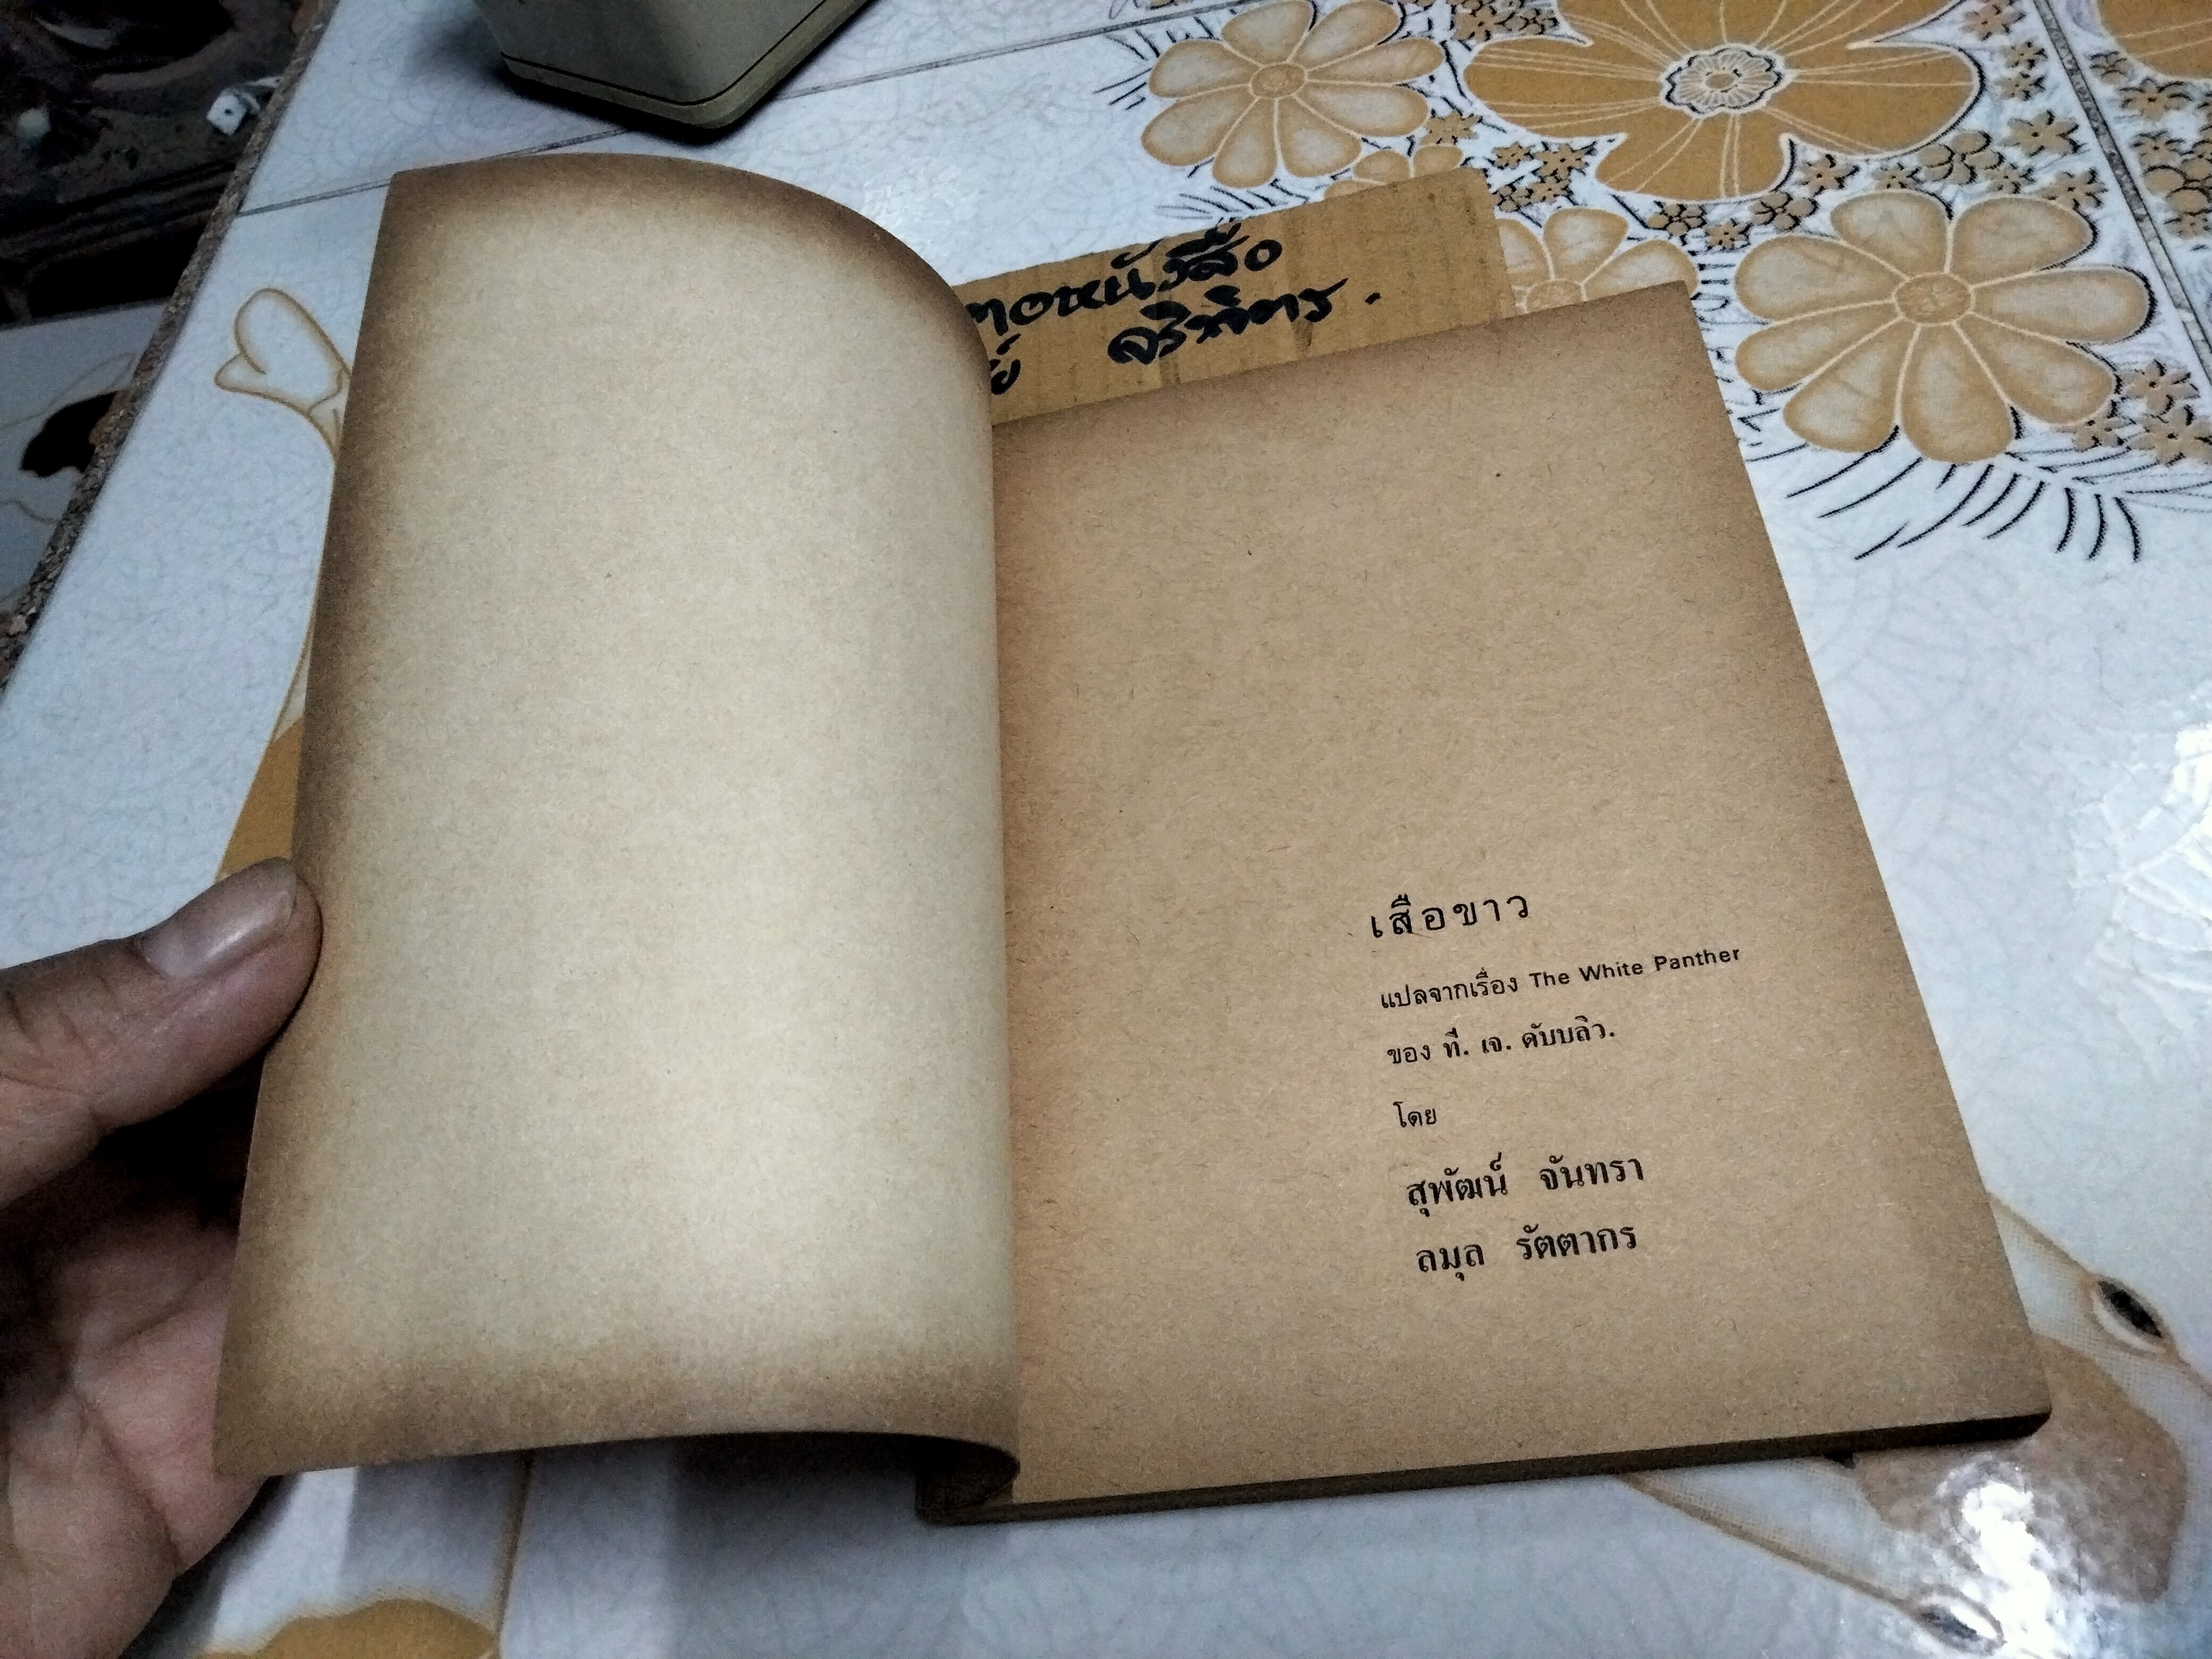 หนังสือ
เสือขาว
แปลจากเรื่อง The White Panther
ของ ที. เจ. ดับบลิว.
โดย
สุพัฒน์ จันทรา
ลมุล รัตตากร